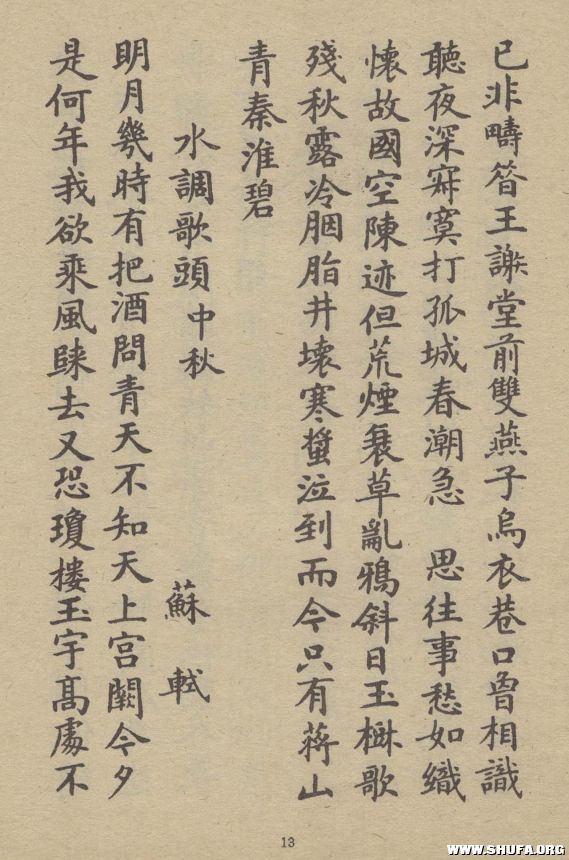 已非疇昔王謝堂前雙燕子烏衣巷口曾相識
聽夜深寂寞打孤城春潮急　思往事愁如織
懷故國空陳迹但荒煙衰草亂鴉斜日玉樹歌
殘秋露冷胭脂井壞寒螿泣到而今只有蔣山
青秦淮碧
水調歌頭中秋　蘇軾
明月幾時有把酒問青天不知天上宫闕今夕
是何年我欲乘風歸去又恐瓊樓玉宇高處不
13
WWW.SHUFA.ORG